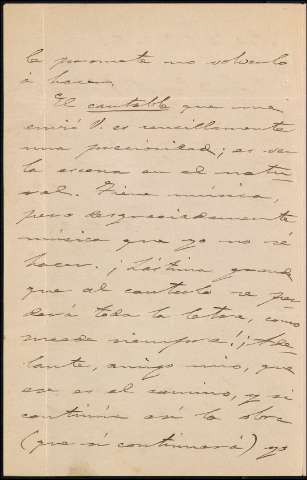 le prometo no volverlo
á hacer.
El cantable que me
envió V. es sencillamente
una preciosidad; es ver
la escena en el natu-
ral. Tiene música,
pero desgraciadamente
música que yo no sé
hacer. ¡Lástima grande
que al cantarlo se per-
derá toda la letra, como
sucede siempre! ¡Ade-
lante, amigo mio, que
ese es el camino, y si
continúa así la obra
(que sí continuará) yo